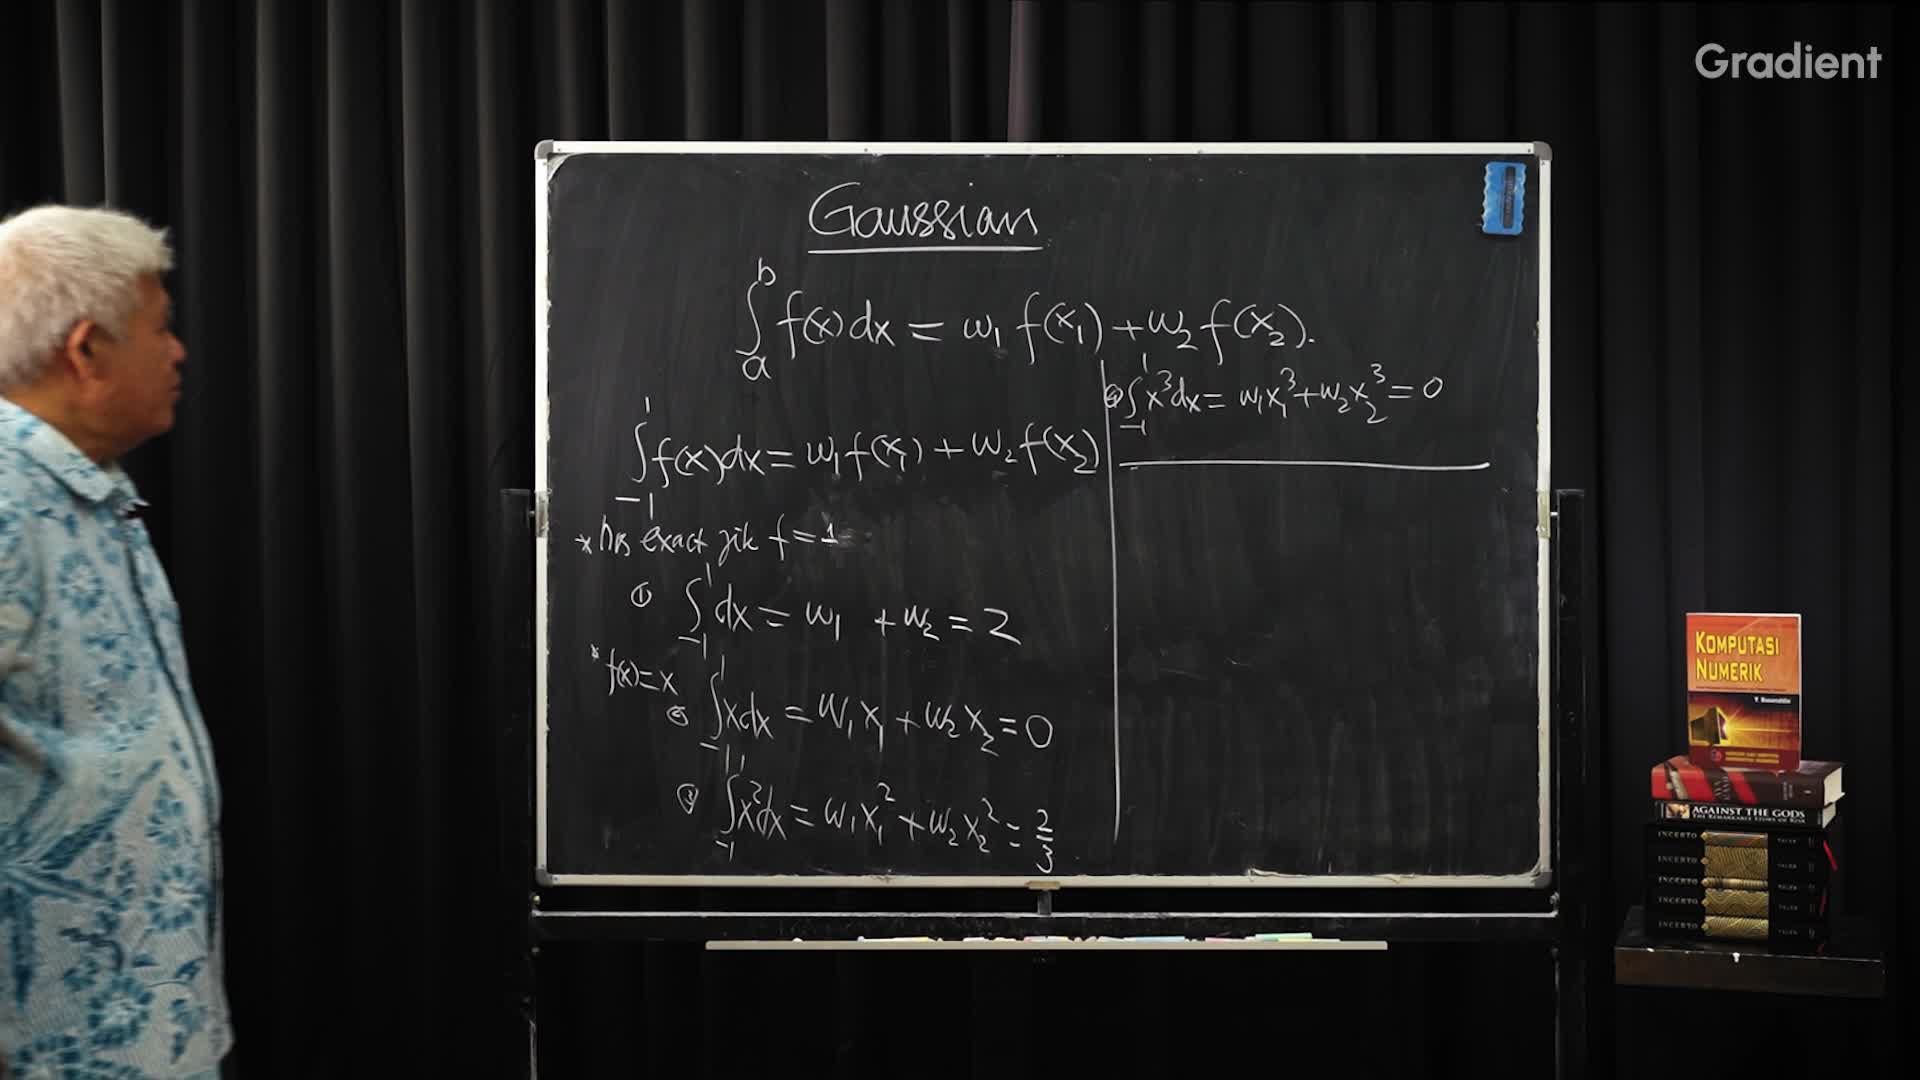 Gradient
Gaussian
∫_a^b f(x)dx = w₁ f(x₁) + w₂ f(x₂).
∫_{-1}^1 f(x)dx = w₁f(x₁) + w₂f(x₂)
* hrs exact jik f = 1
① ∫_{-1}^1 dx = w₁ + w₂ = 2
* f(x) = x
② ∫_{-1}^1 xdx = w₁x₁ + w₂x₂ = 0
③ ∫_{-1}^1 x²dx = w₁x₁² + w₂x₂² = 2/3
④ ∫_{-1}^1 x³dx = w₁x₁³ + w₂x₂³ = 0
KOMPUTASI
NUMERIK
AGAINST THE GODS
THE REMARKABLE STORY OF RISK
INCERTO TALEB
INCERTO TALEB
INCERTO TALEB
INCERTO TALEB
INCERTO TALEB